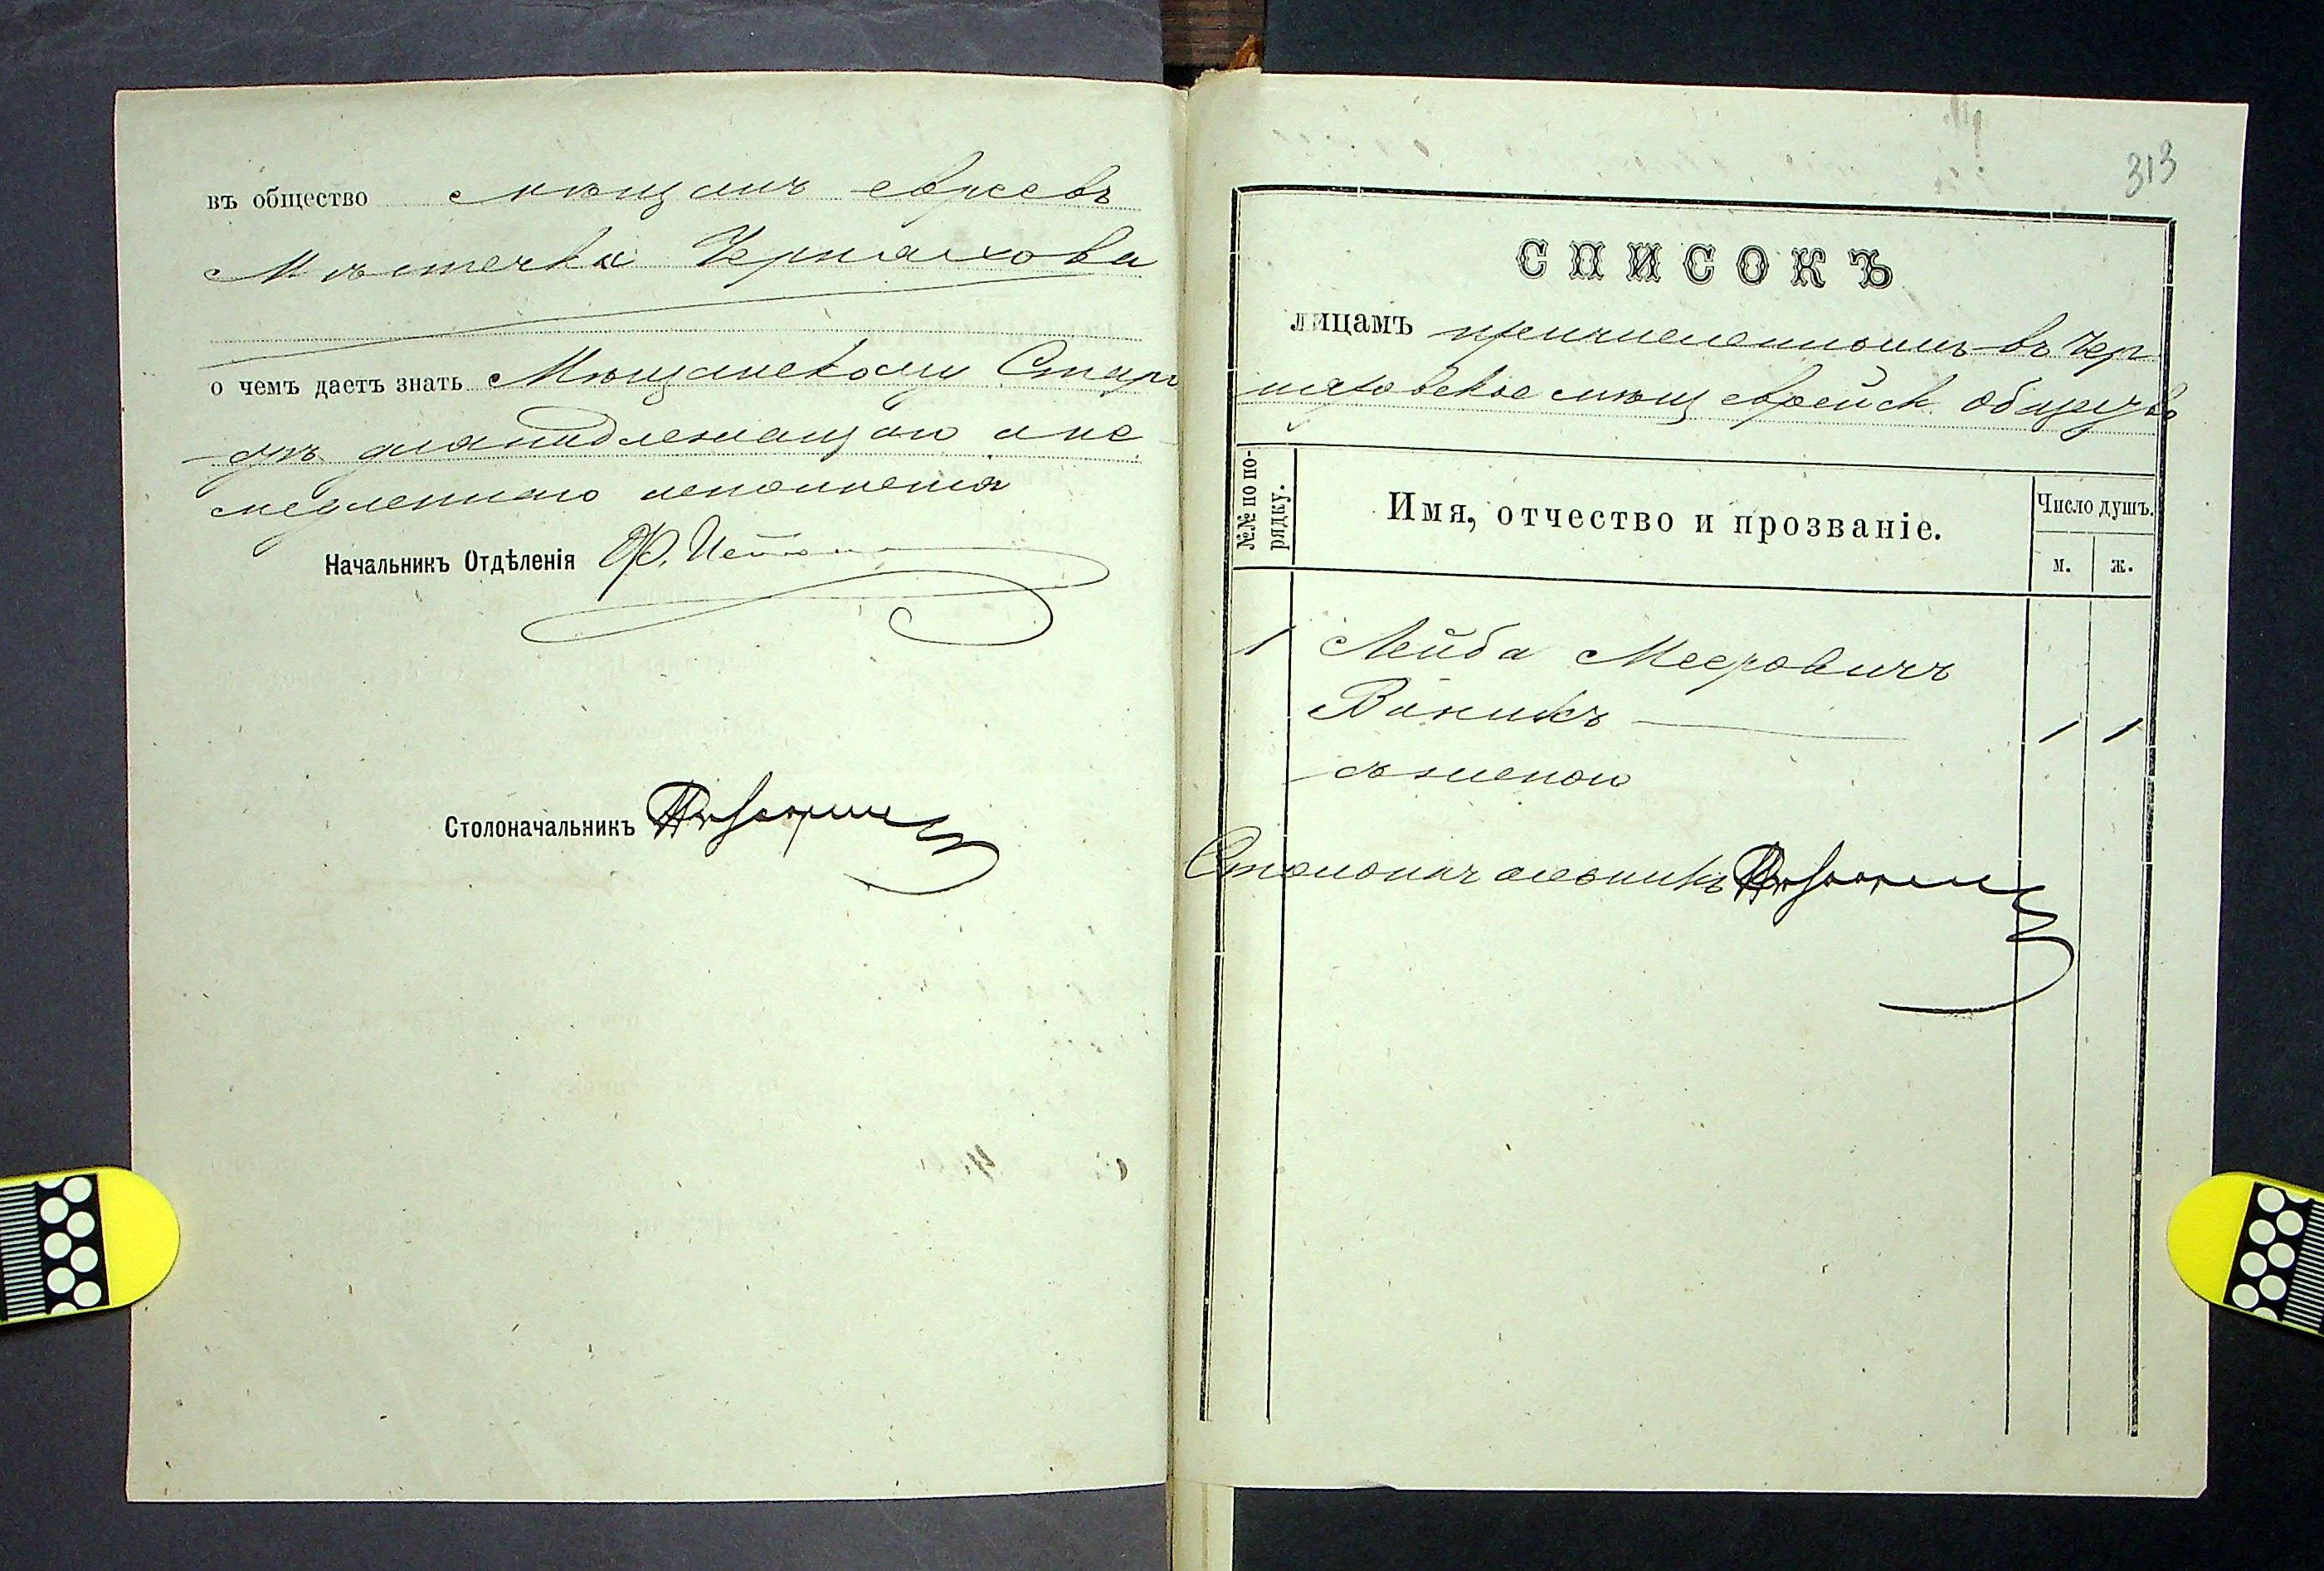 въ общество мѣщанъ евреевъ
Мѣстечка Черняхова
о чемъ даетъ знать Мѣщанскому Старо
стѣ для надлежащаго и не
медленнаго исполненія
Начальникъ Отдѣленія
Столоначальникъ
313
СПИСОКЪ
лицамъ причисленнымъ въ Чер
няховское мѣщ еврейск. общество
№№ по по-
рядку.
Имя, отчество и прозваніе.
Число душъ.
м. ж.
1 Лейба Мееровичъ
Виникъ 1 1
съ женою
Столоначальникъ